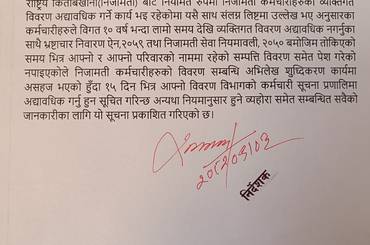 राष्ट्रिय किताबखाना(निजामती) बाट नियमित रुपमा निजामती कर्मचारीहरुको व्यक्तिगत
विवरण अद्यावधिक गर्ने कार्य भइ रहेकोमा यसै साथ संलग्न लिष्टमा उल्लेख भए अनुसारका
कर्मचारीहरुले विगत १० बर्ष भन्दा लामो समय देखि व्यक्तिगत विवरण अद्यावधिक नगर्नुका
साथै भ्रष्टाचार निवारण ऐन,२०५९ तथा निजामती सेवा नियमावली, २०५० बमोजिम तोकिएको
समय भित्र आफ्नो र आफ्नो परिवारको नाममा रहेको सम्पत्ति विवरण समेत पेश गरेको
नपाइएकोले निजामती कर्मचारीहरुको विवरण सम्बन्धि अभिलेख शुध्दिकरण कार्यमा
असहज भएको हुँदा १५ दिन भित्र आफ्नो विवरण विभागको कर्मचारी सूचना प्रणालिमा
अद्यावधिक गर्नु हुन सूचित गरिन्छ अन्यथा नियमानुसार हुने व्यहोरा समेत सम्बन्धित सवैको
जानकारीका लागि यो सूचना प्रकाशित गरिएको छ।
निर्देशक